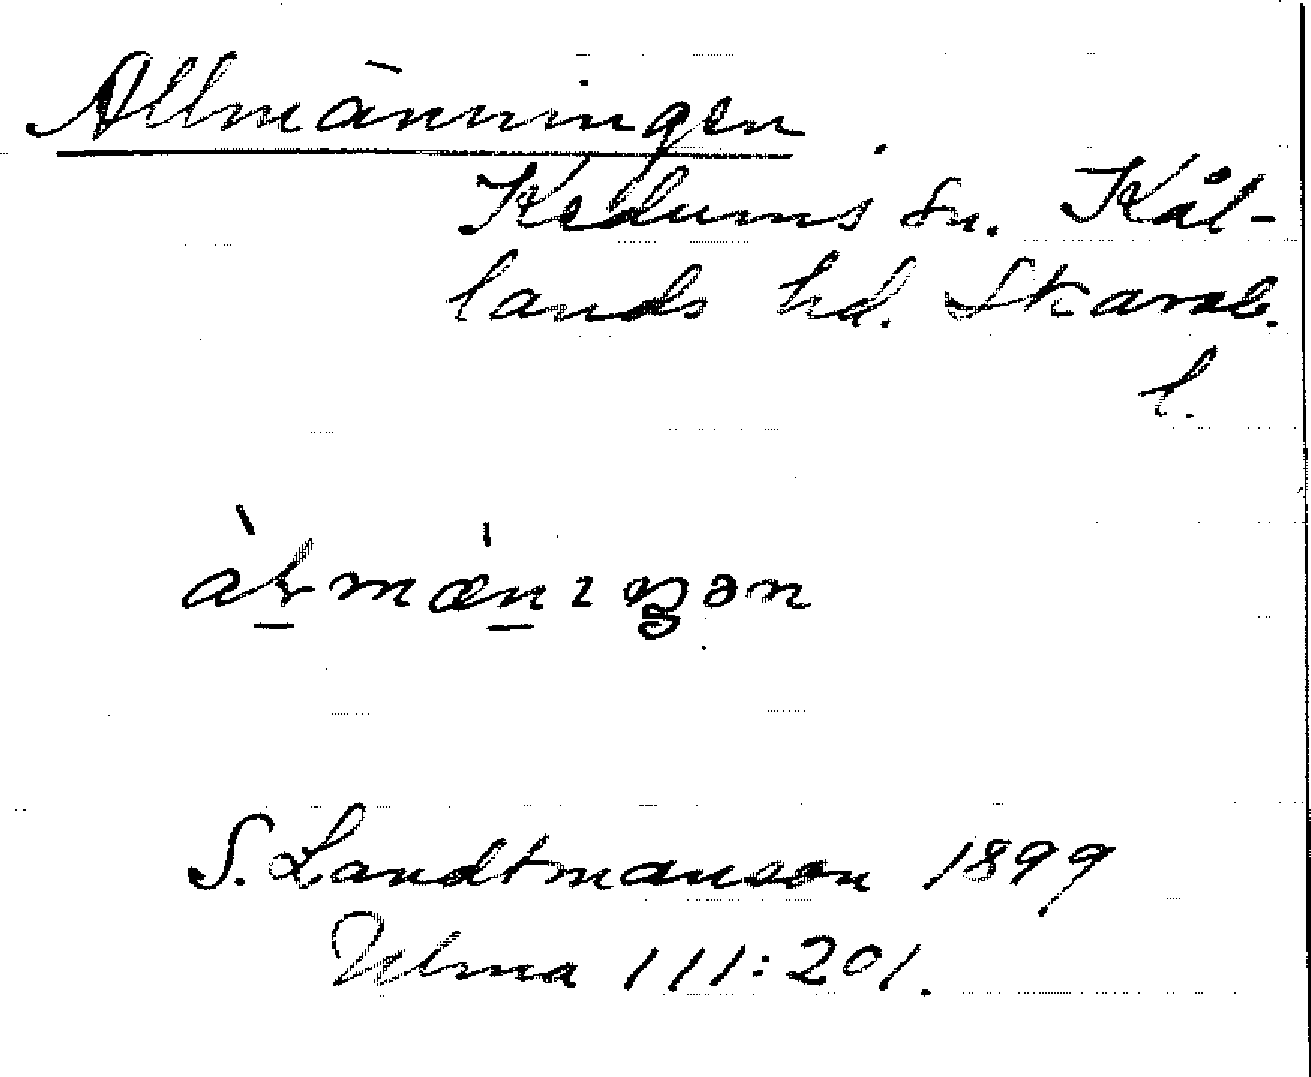 Allmänningen.
Kedums sn. Kål-
lands hd. Skarab.
l.
àłmæ̀nıŋən
S. Landtmanson 1899
Ulma 111:201.